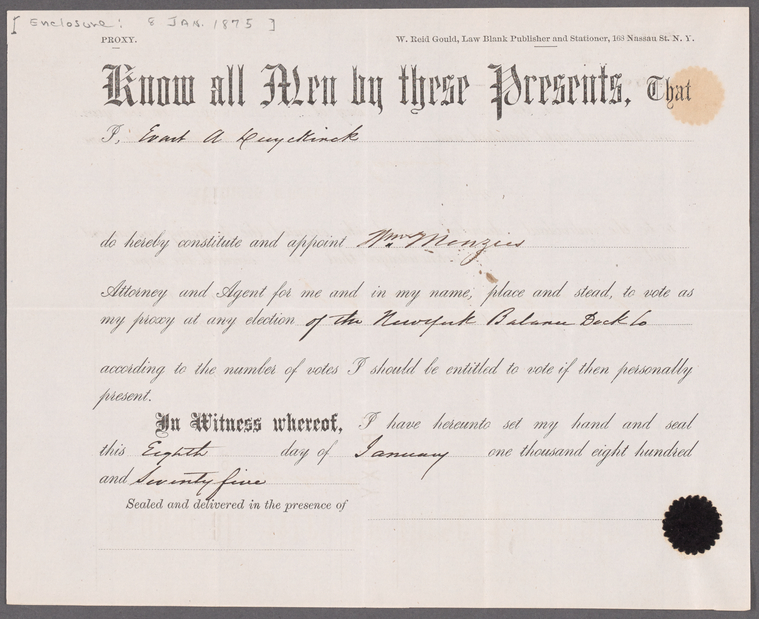 [ Enclosure: 8 JAN. 1875 ]
PROXY. W. Reid Gould, Law Blank Publisher and Stationer, 168 Nassau St. N. Y.
Know all Men by these Presents, That
I, Evert A Duyckinck
do hereby constitute and appoint Wm. Menzies
Attorney and Agent for me and in my name, place and stead, to vote as
my proxy at any election of the Newyork Balance Dock Co
according to the number of votes I should be entitled to vote if then personally
present.
In Witness whereof, I have hereunto set my hand and seal
this Eighth day of January one thousand eight hundred
and Seventy five
Sealed and delivered in the presence of